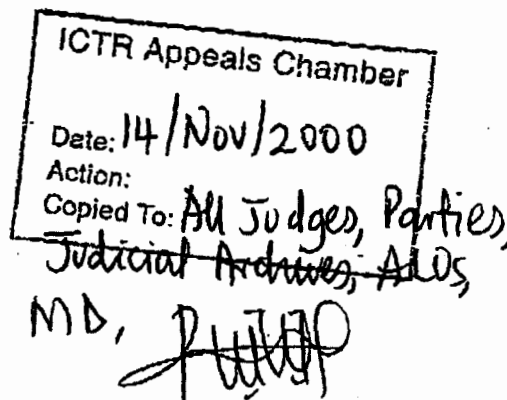 ICTR Appeals Chamber
Date: 14/Nov/2000
Action:
Copied To: All Judges, Parties,
Judicial Archives, ALOs,
MD,